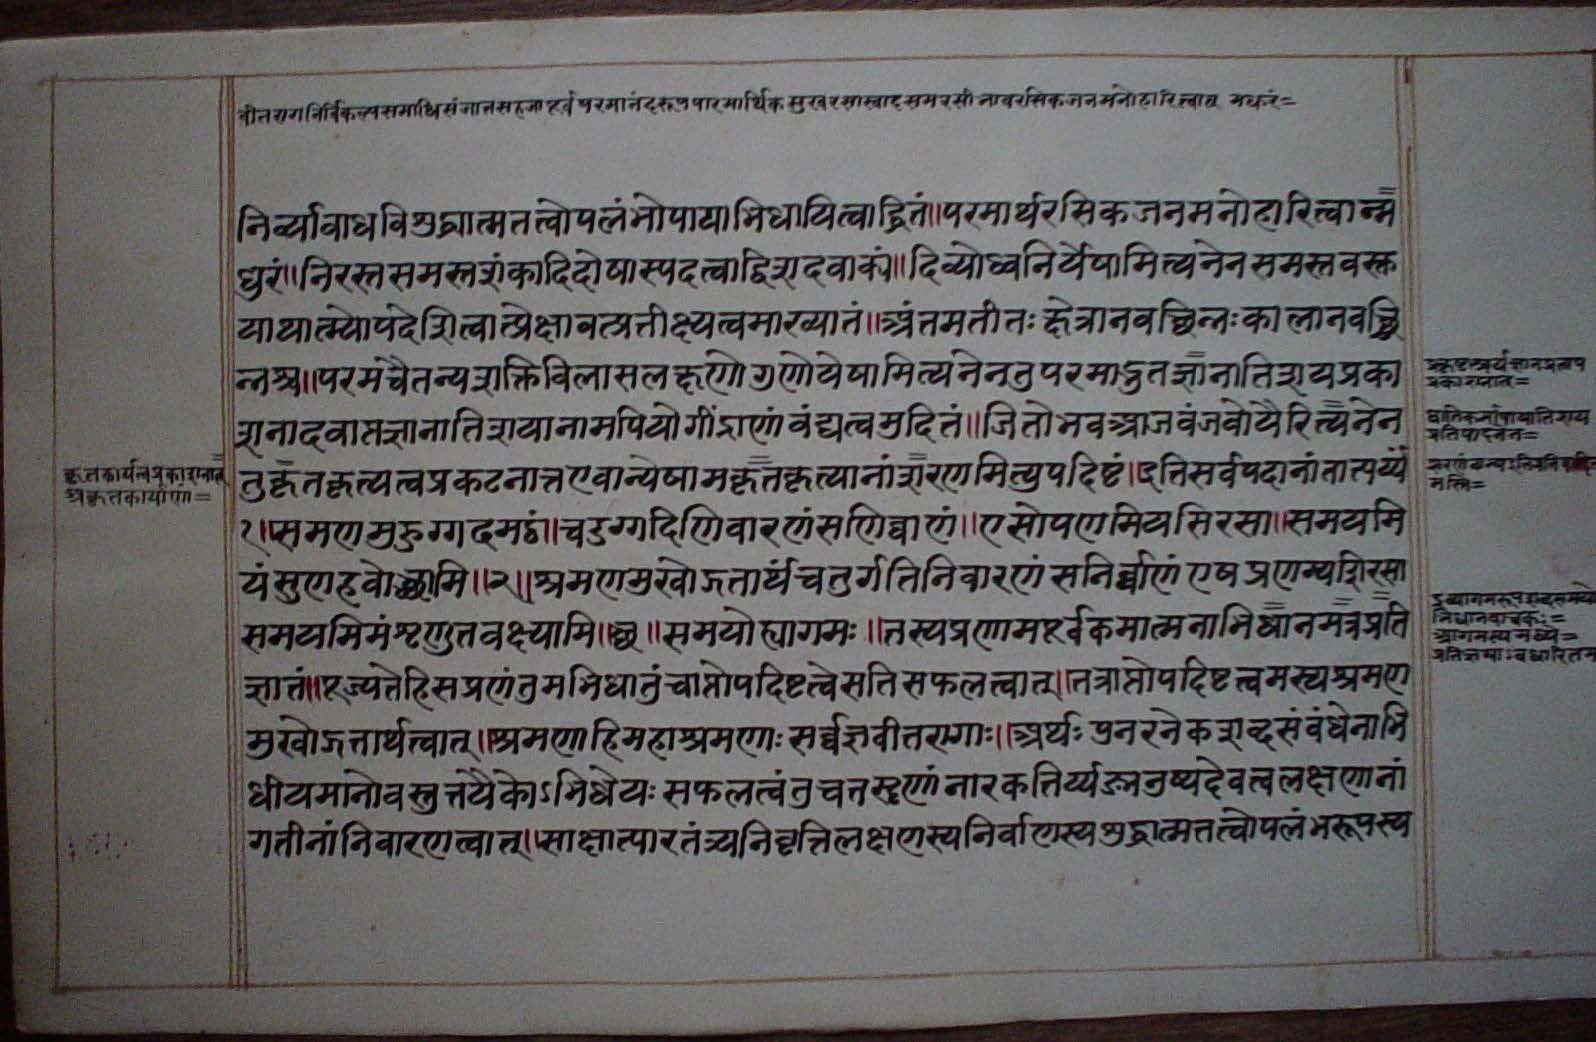 वीतरागनिर्विकल्पसमाधिसंजातसहजापूर्वपरमानंदरूपपारमार्थिकसुखरसास्वादसमरसीभावरसिकजनमनोहारित्वात् मधुरं=
निर्व्याबाधविशुद्धात्मतत्त्वोपलंभोपायाभिधायित्वाद्धितं॥परमार्थरसिकजनमनोहारित्वान्म
धुरं॥निरस्तसमस्तशंकादिदोषास्पदत्वाद्विशदवाक्यं॥दिव्योध्वनिर्येषामित्यनेनसमस्तवस्तु
याथात्म्योपदेशित्वात्प्रेक्षावत्प्रतीक्ष्यत्वमाख्यातं॥अंतमतीतः क्षेत्रानवच्छिन्नः कालानवच्छि
न्नश्च॥परमचैतन्यशक्तिविलासलक्षणो गुणो येषामित्यनेनतुपरमाद्भुतज्ञानातिशयप्रका
शनादवाप्तज्ञानातिशयानामपियोगींद्राणां वंद्यत्वमुदितं॥जितोभवआजवंजवोयैरित्यनेन
कृतकार्यत्वप्रकाशनात्
अकृतकार्याणां=
तुकृतकृत्यत्वप्रकटनात्तएवान्येषामकृतकृत्यानांशरणमित्युपदिष्टं।इतिसर्वपदानांतात्पर्यं
१॥समणमुहुग्गदमठं॥चदुग्गदिणिवारणंसणिव्वाणं॥एसोपणमियसिरसा॥समयमि
यंसुणहवोच्छामि॥२॥श्रमणमुखोद्गतार्थंचतुर्गतिनिवारणंसनिर्व्वाणंएषप्रणम्यशिरसा
समयमिमंशृणुतवक्ष्यामि॥छ॥समयोह्यागमः॥तस्यप्रणामपूर्वकमात्मनाभिधानमत्रप्रति
ज्ञातं॥पूज्यतेहिसप्रणंतुमभिधातुंचाप्तोपदिष्टत्वेसतिसफलत्वात्॥तत्राप्तोपदिष्टत्वमस्यश्रमण
मुखोद्गतार्थत्वात्॥श्रमणाहिमहाश्रमणाः सर्व्वज्ञवीतरागाः॥अर्थः पुनरनेकशब्दसंबंधेनाभि
धीयमानोवस्तुतयैकोऽभिधेयः सफलत्वंतुचतसृणांनारकतिर्य्यङ्मनुष्यदेवत्वलक्षणानां
गतीनांनिवारणत्वात्॥साक्षात्पारतंत्र्यनिवृत्तिलक्षणस्यनिर्वाणस्यशुद्धात्मतत्त्वोपलंभरूपस्य
प्रकाशनात्=
प्रतिपादनेन=
द्रव्यागमरूपशब्दसमयो
भिधानवाचकः=
आगमस्य मध्ये=